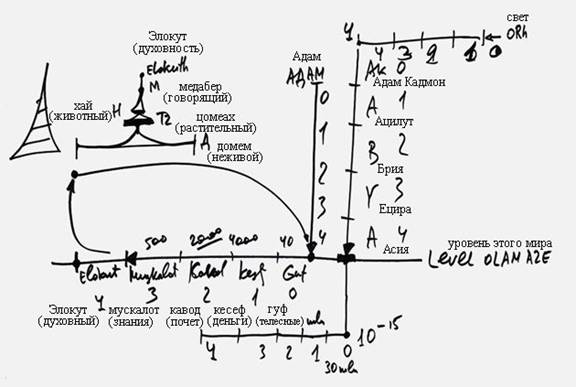 Элокут
(духовность)
Elokuth
M
медабер
(говорящий)
хай
(животный)
H
TZ
цомеах
(растительный)
Д
домем
(неживой)
Адам
АДАМ
0
1
2
3
4
4
4 3 2 1 0
свет
ORh
AK 0
Адам Кадмон
A 1
Ацилут
B 2
Брия
Y 3
Ецира
A 4
Асия
уровень этого мира
Level OLAM AZE
500 2000 4000 40
Elokut Muskalot Kabod kesf Guf
4 3 2 1 0
Элокут
(духовный)
мускалот
(знания)
кавод
(почет)
кесеф
(деньги)
гуф
(телесные)
4 3 2 1 0
10-15